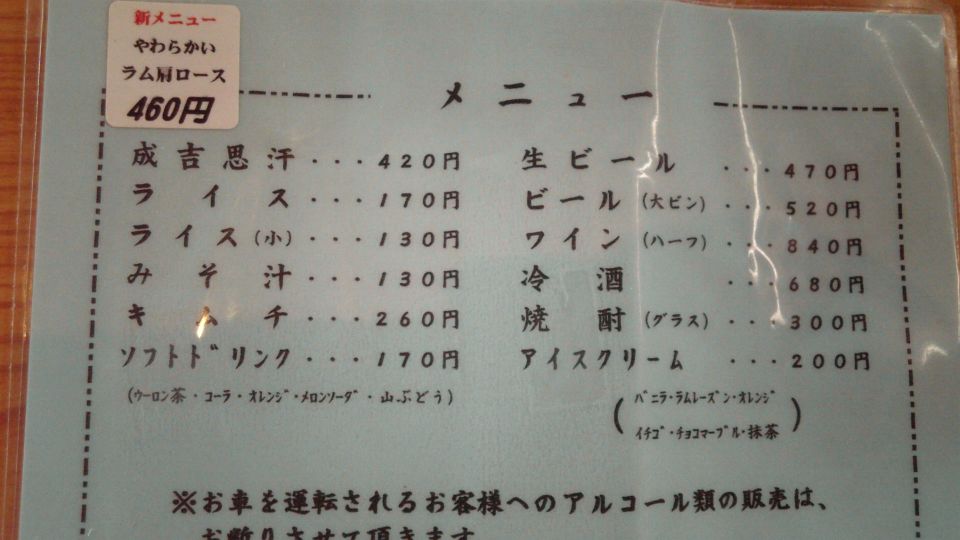 新メニュー
やわらかい
ラム肩ロース
460円
メニュー
成吉思汗・・・420円
ライス・・・170円
ライス(小)・・・130円
みそ汁・・・130円
キムチ・・・260円
ソフトドリンク・・・170円
(ウーロン茶・コーラ・オレンジ・メロンソーダ・山ぶどう)
生ビール・・・470円
ビール(大ビン)・・・520円
ワイン(ハーフ)・・・840円
冷酒・・・680円
焼酎(グラス)・・・300円
アイスクリーム・・・200円
(バニラ・ラムレーズン・オレンジ
イチゴ・チョコマーブル・抹茶)
※お車を運転されるお客様へのアルコール類の販売は、
お断りさせて頂きます